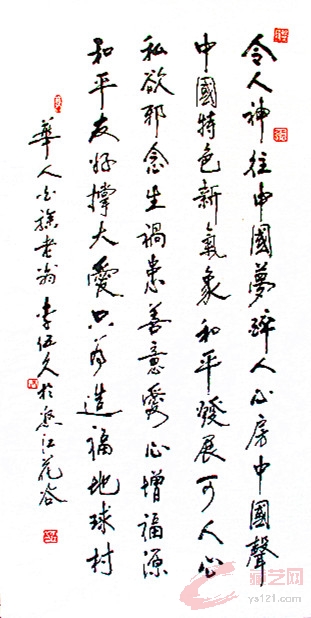 令人神往中國夢醉人心房中國聲
中國特色新氣象和平發展可人心
私欲邪念生禍患善意愛心增福源
和平友好撑大愛只為造福地球村
華人族老翁李伍久於江花谷
艺网
ys121.com